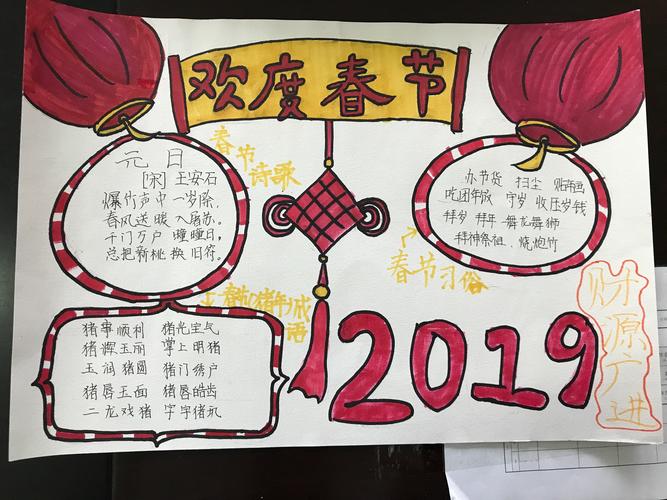 欢度春节
元日
[宋] 王安石
爆竹声中一岁除,
春风送暖入屠苏.
千门万户曈曈日,
总把新桃换旧符.
春节
诗歌
办节货 扫尘 贴年画
吃团年饭 守岁 收压岁钱
拜岁 拜年 舞龙舞狮
拜神祭祖、烧炮竹
春节习俗
春节(猪年)成
语
猪事顺利 猪光宝气
猪辉玉丽 掌上明猪
玉润猪圆 猪门绣户
猪唇玉面 猪唇皓齿
二龙戏猪 字字猪玑
2019
财源广进